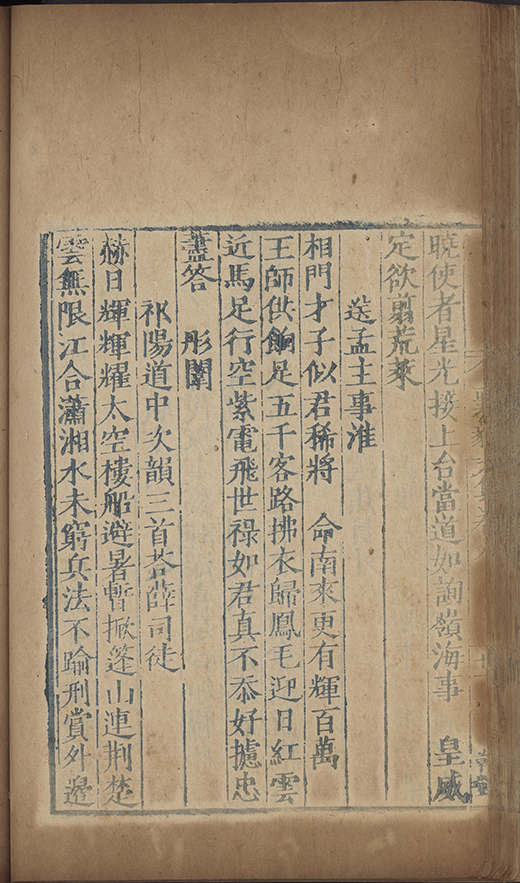 曉使者星光接上台當道如詢嶺海事　皇威
定欲剪荒萊
送孟主事淮
相門才子似君稀將　命南來更有輝百萬
王師供餉足五千客路拂衣歸鳳毛迎日紅雲
近馬足行空紫電飛世祿如君真不忝好攄忠
藎答　彤闈
祁陽道中次韻三首荅薛司徒
赫日輝輝耀太空樓船避暑暫掀蓬山連荆楚
雲無限江合瀟湘水未窮兵法不踰刑賞外邊